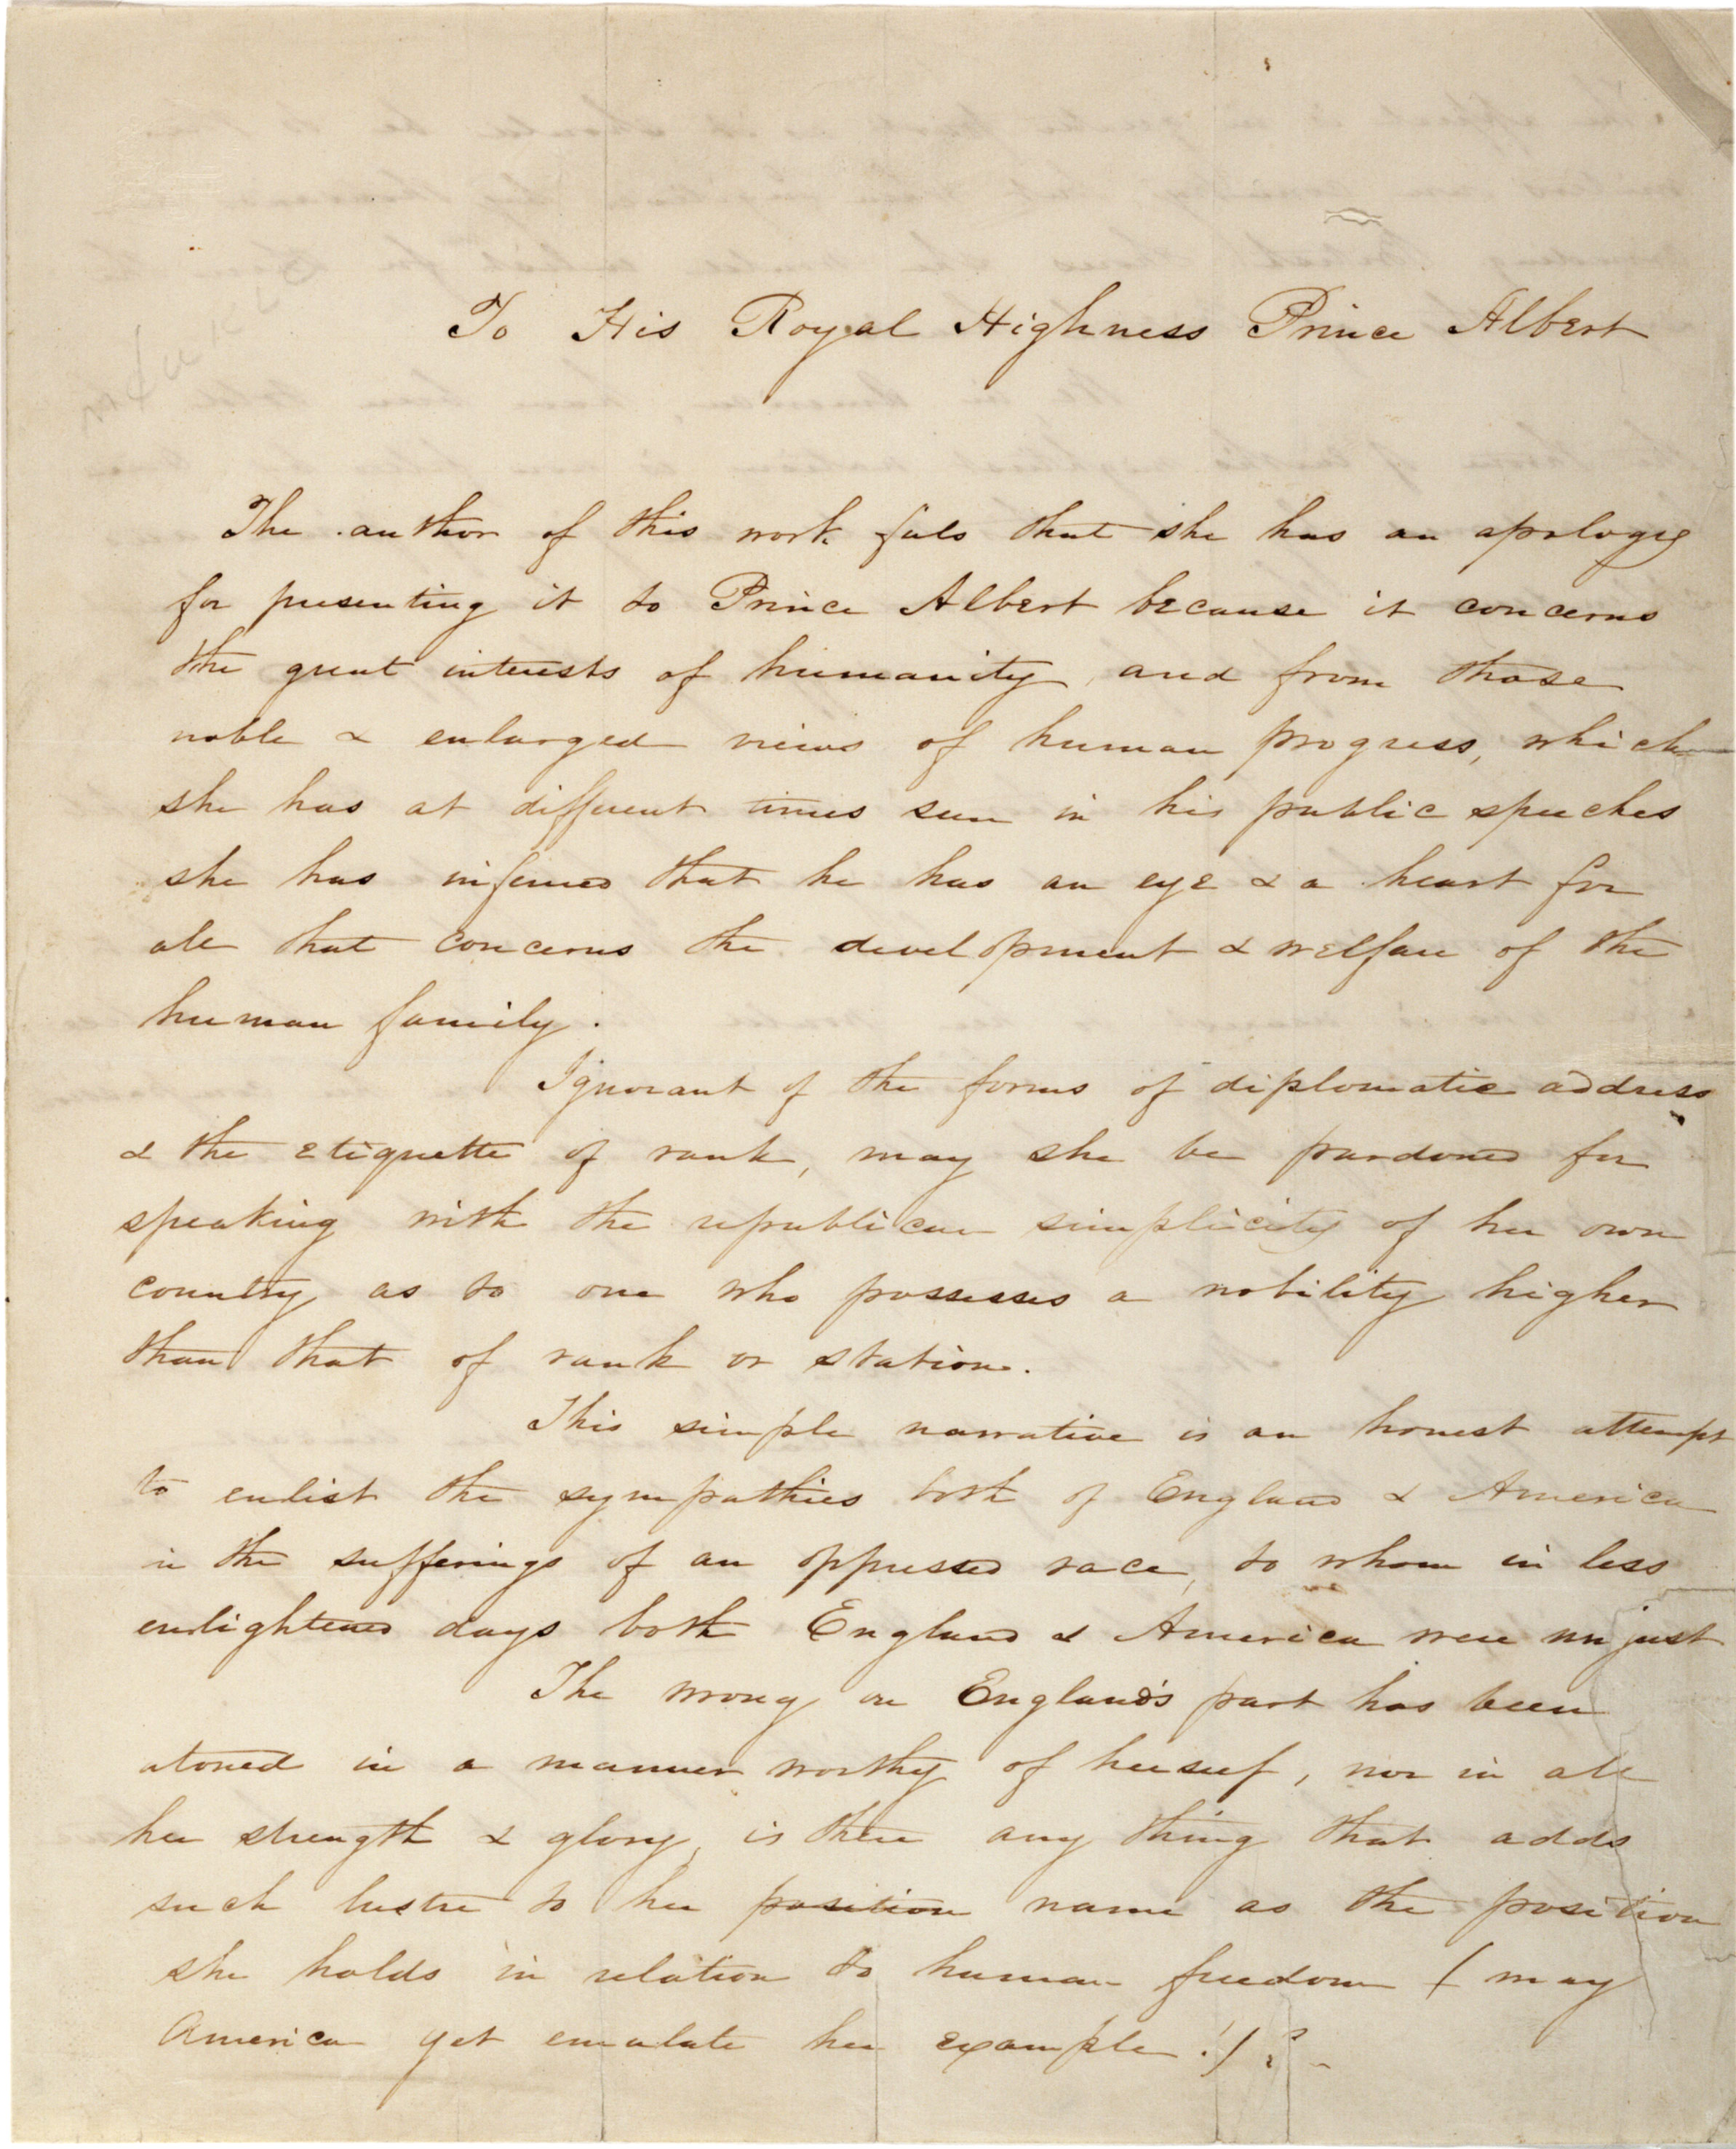 To His Royal Highness Prince Albert
The author of this work feels that she has an apology
for presenting it to Prince Albert because it concerns
the great interests of humanity, and from those
noble & enlarged views of human progress, which
she has at different times seen in his public speeches
she has inferred that he has an eye & a heart for
all that concerns the development & welfare of the
human family.
Ignorant of the forms of diplomatic address
& the etiquette of rank, may she be pardoned for
speaking with the republican simplicity of her own
country as to one who possesses a nobility higher
than that of rank or station.
This simple narrative is an honest attempt
to enlist the sympathies both of England & America
in the sufferings of an oppressed race, to whom in less
enlightened days both England & America were unjust
The wrong on England's part has been
atoned in a manner worthy of herself, nor in all
her strength & glory, is there any thing that adds
such lustre to her position name as the position
she holds in relation to human freedom (may
America yet emulate her example!)